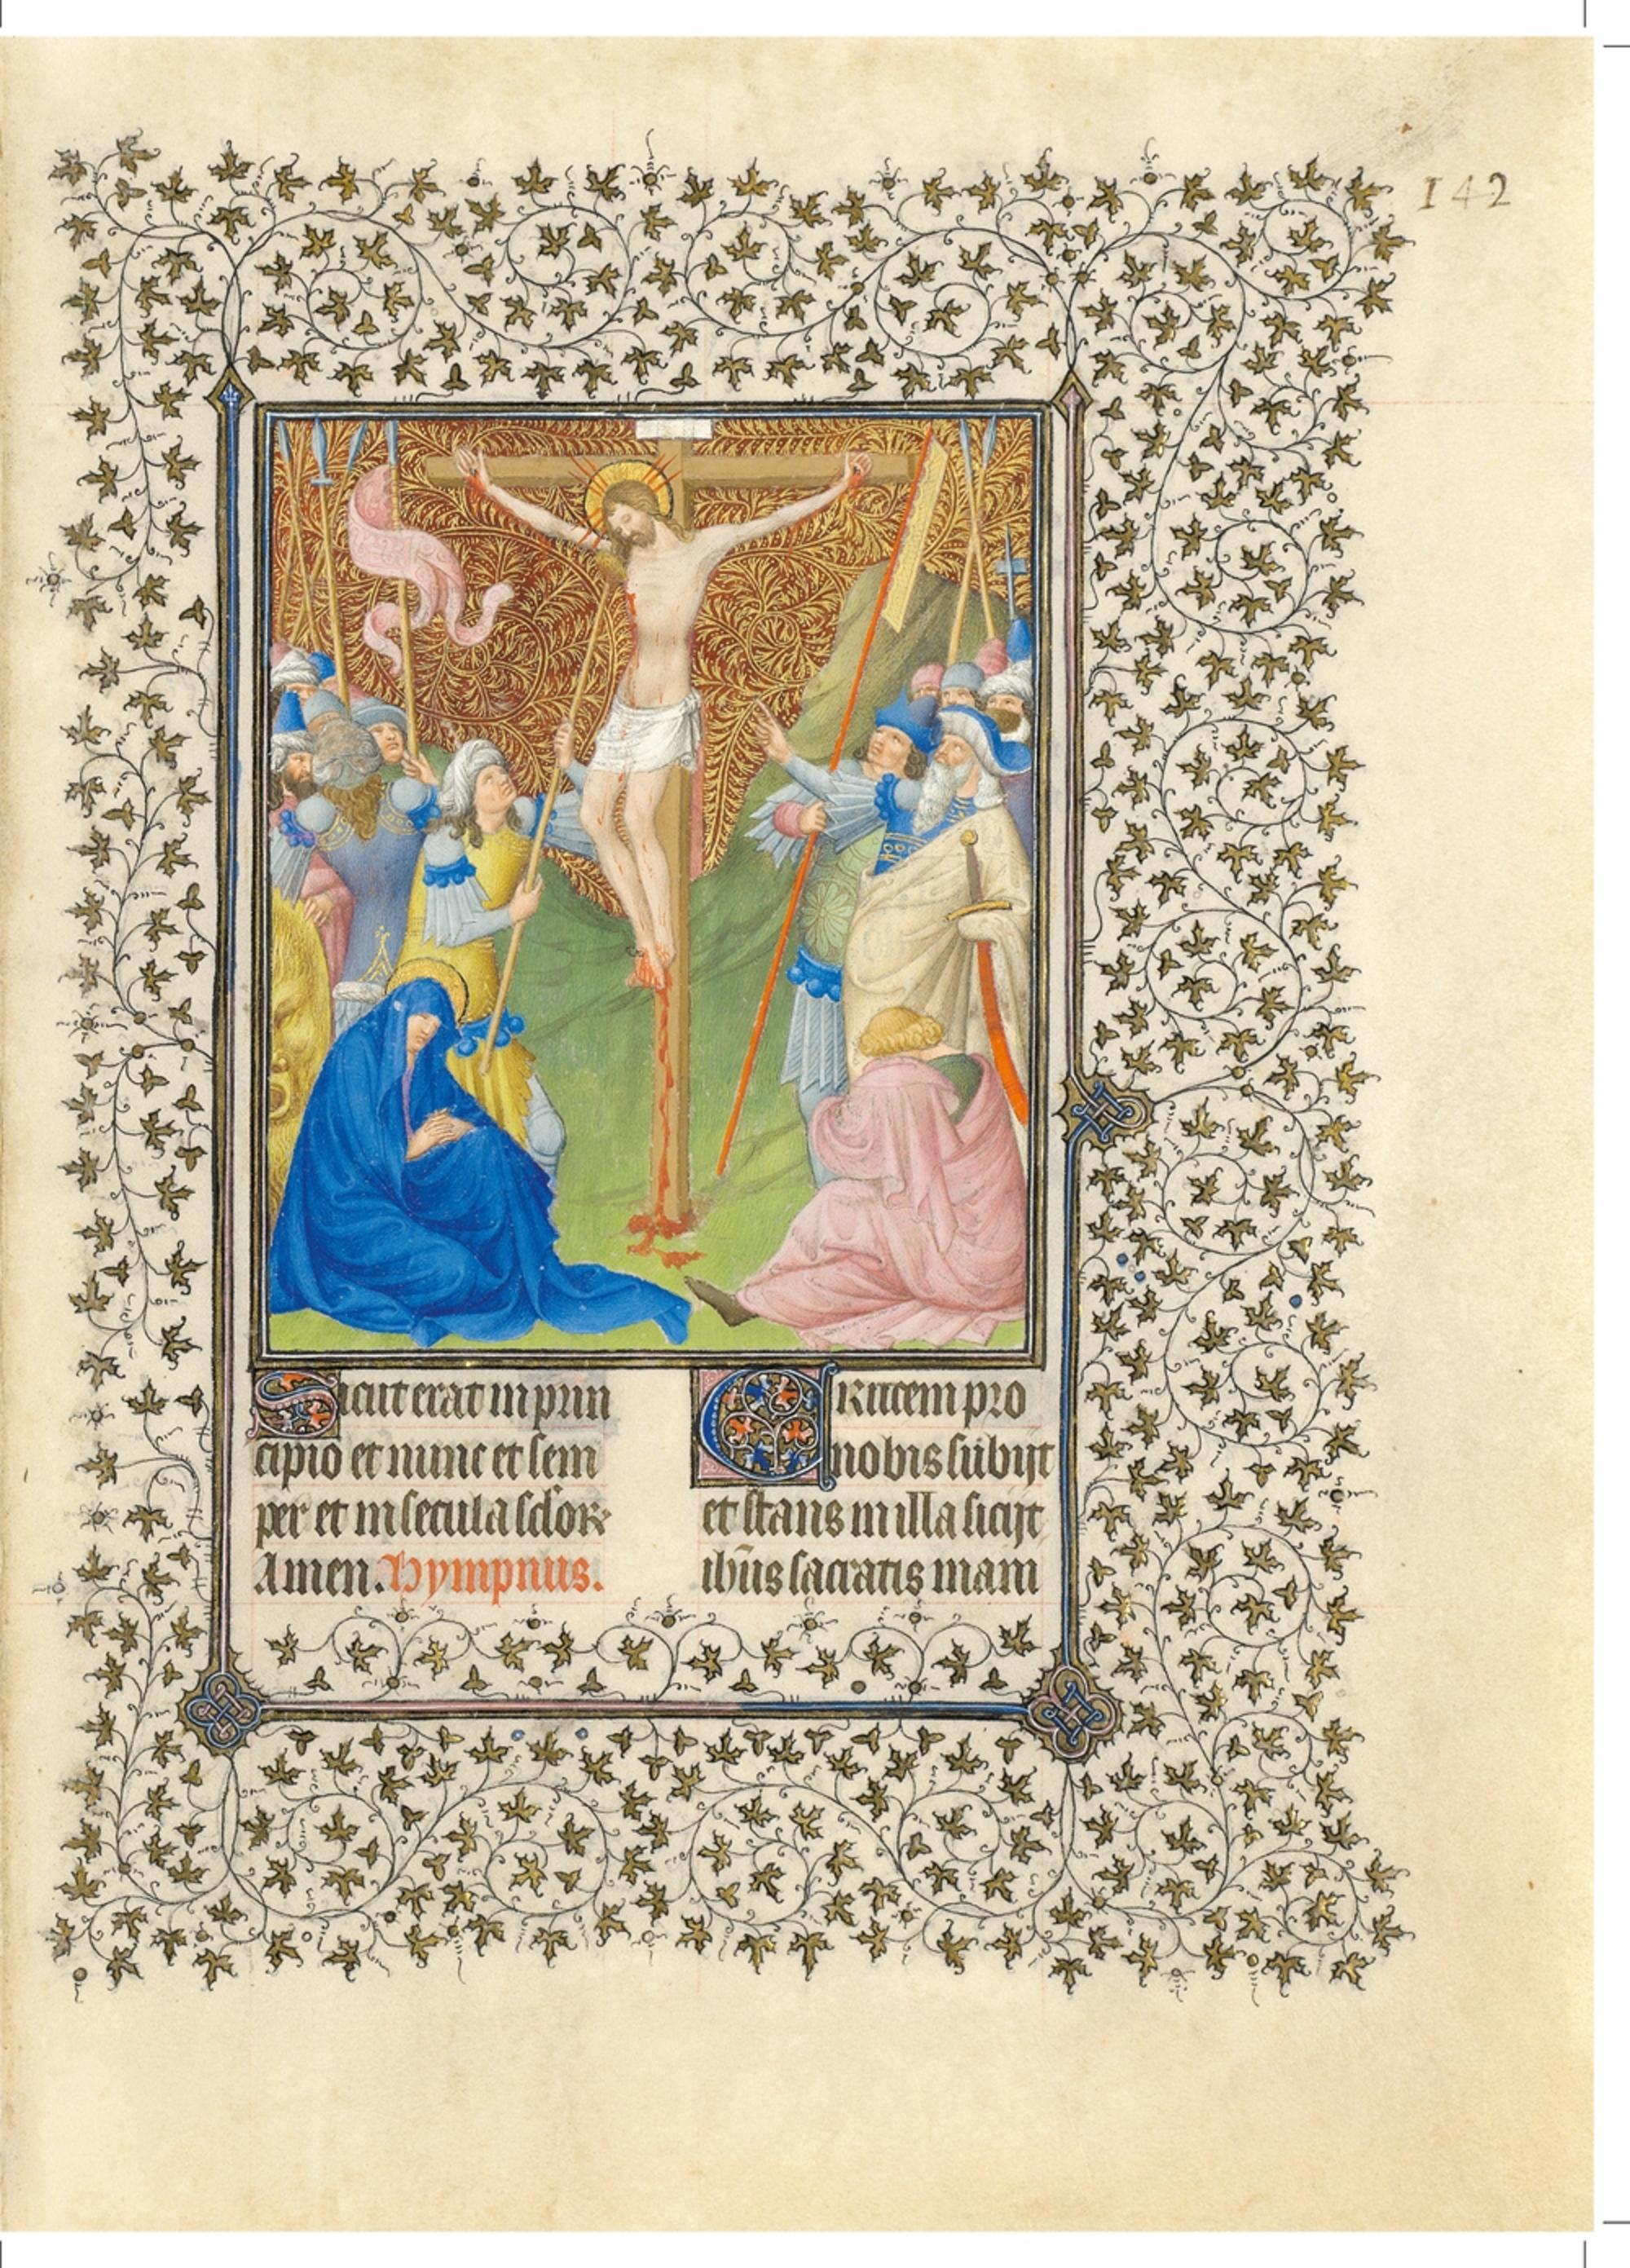 142
Sicut erat in prin
cipio et nunc et sem
per et in secula sclor
Amen. Hympnus.
Crucem pro
nobis subijt
et stans in illa sicijt
ihūs sacratis mani